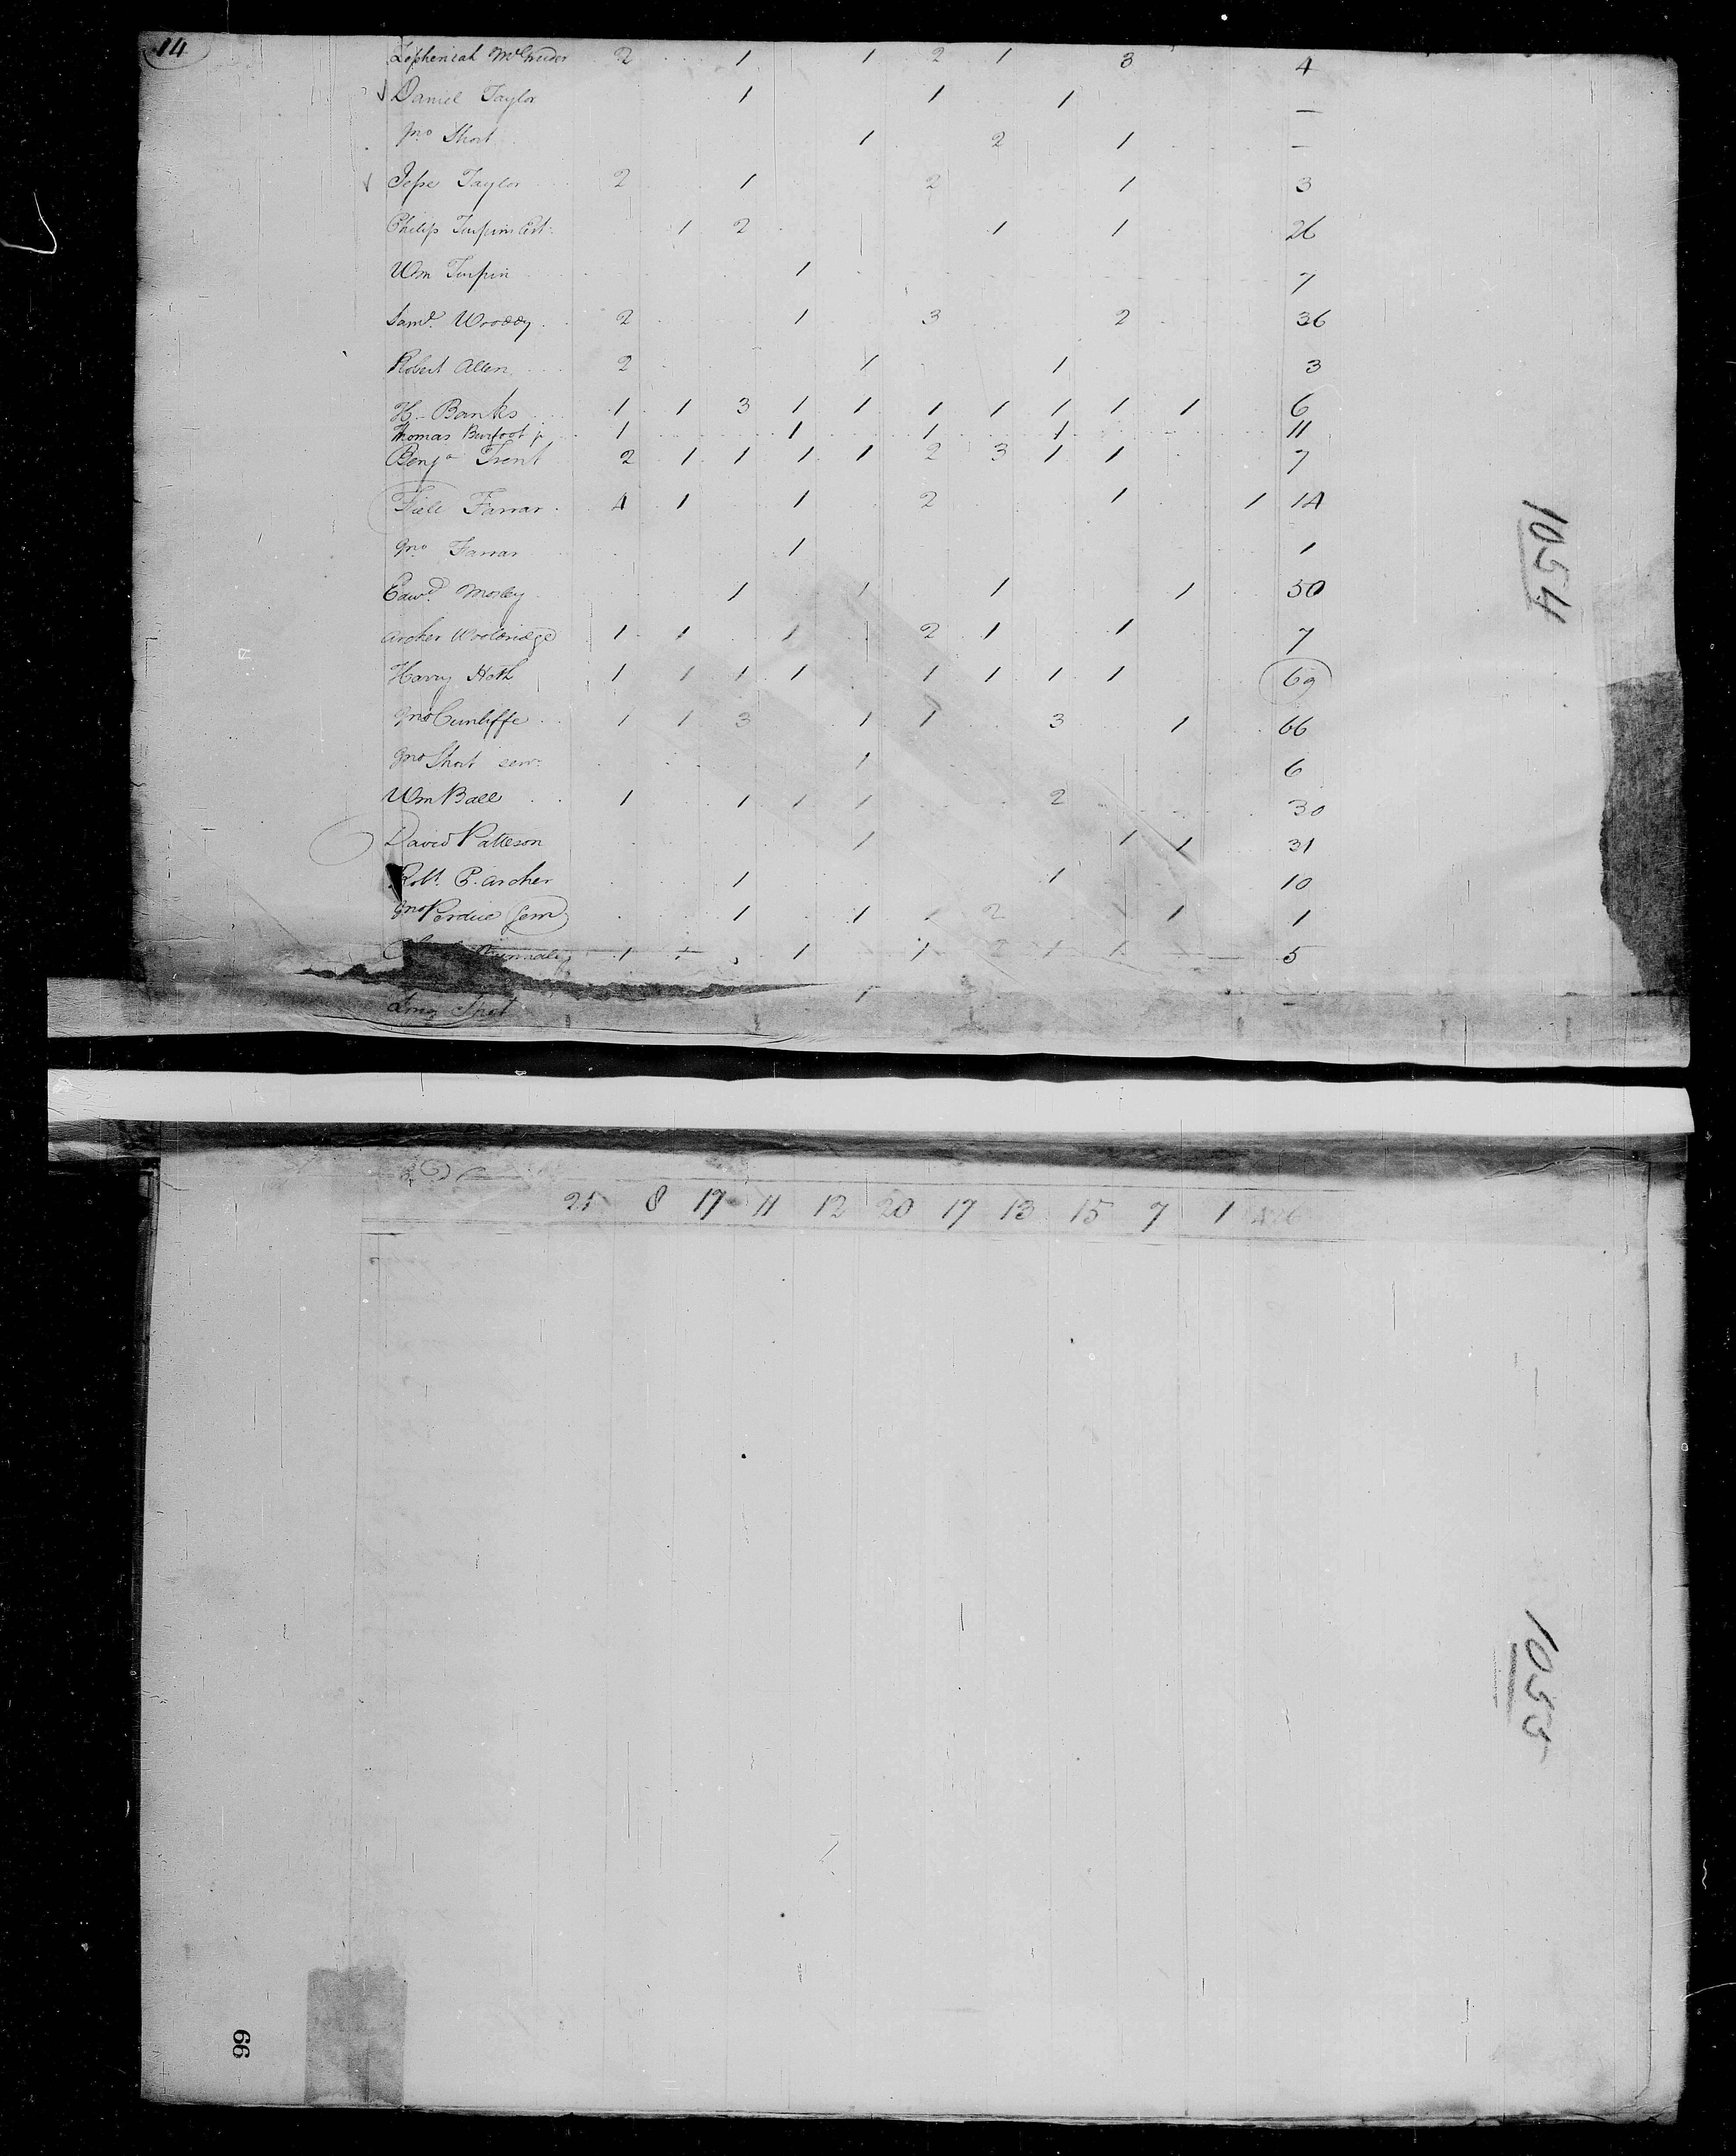 14
Zepheniah McGruder 2 1 1 2 1 3 4
Daniel Taylor 1 1 1 —
Jno Short 1 2 1 —
Jesse Taylor 2 1 2 1 3
Philip Turpin Est: 1 2 1 1 26
Wm Turpin 1 7
Saml. Wooddy 2 1 3 2 36
Robert Allen 2 1 1 3
H. Banks 1 1 3 1 1 1 1 1 1 1 6
Thomas Burfoot jr 1 1 1 1 11
Benja Trent 2 1 1 1 1 2 3 1 1 7
Field Farrar 4 1 1 2 1 1 14
Jno Farrar 1 1
Edwd. Mosley 1 1 1 1 50
Archer Wooldridge 1 1 1 2 1 1 7
Harry Heth 1 1 1 1 1 1 1 1 69
Jno Cunliffe 1 1 3 1 1 3 1 66
Jno Short senr: 1 6
Wm Ball 1 1 1 1 2 30
David Patteson 1 1 1 31
Robt. P. Archer 1 1 10
Jno Perdue Senr 1 1 1 2 1 1 1
Nunnaly 1 1 1 1 2 1 1 5
1 —
1054
25 8 17 11 12 20 17 13 15 7 1 426
1055
66